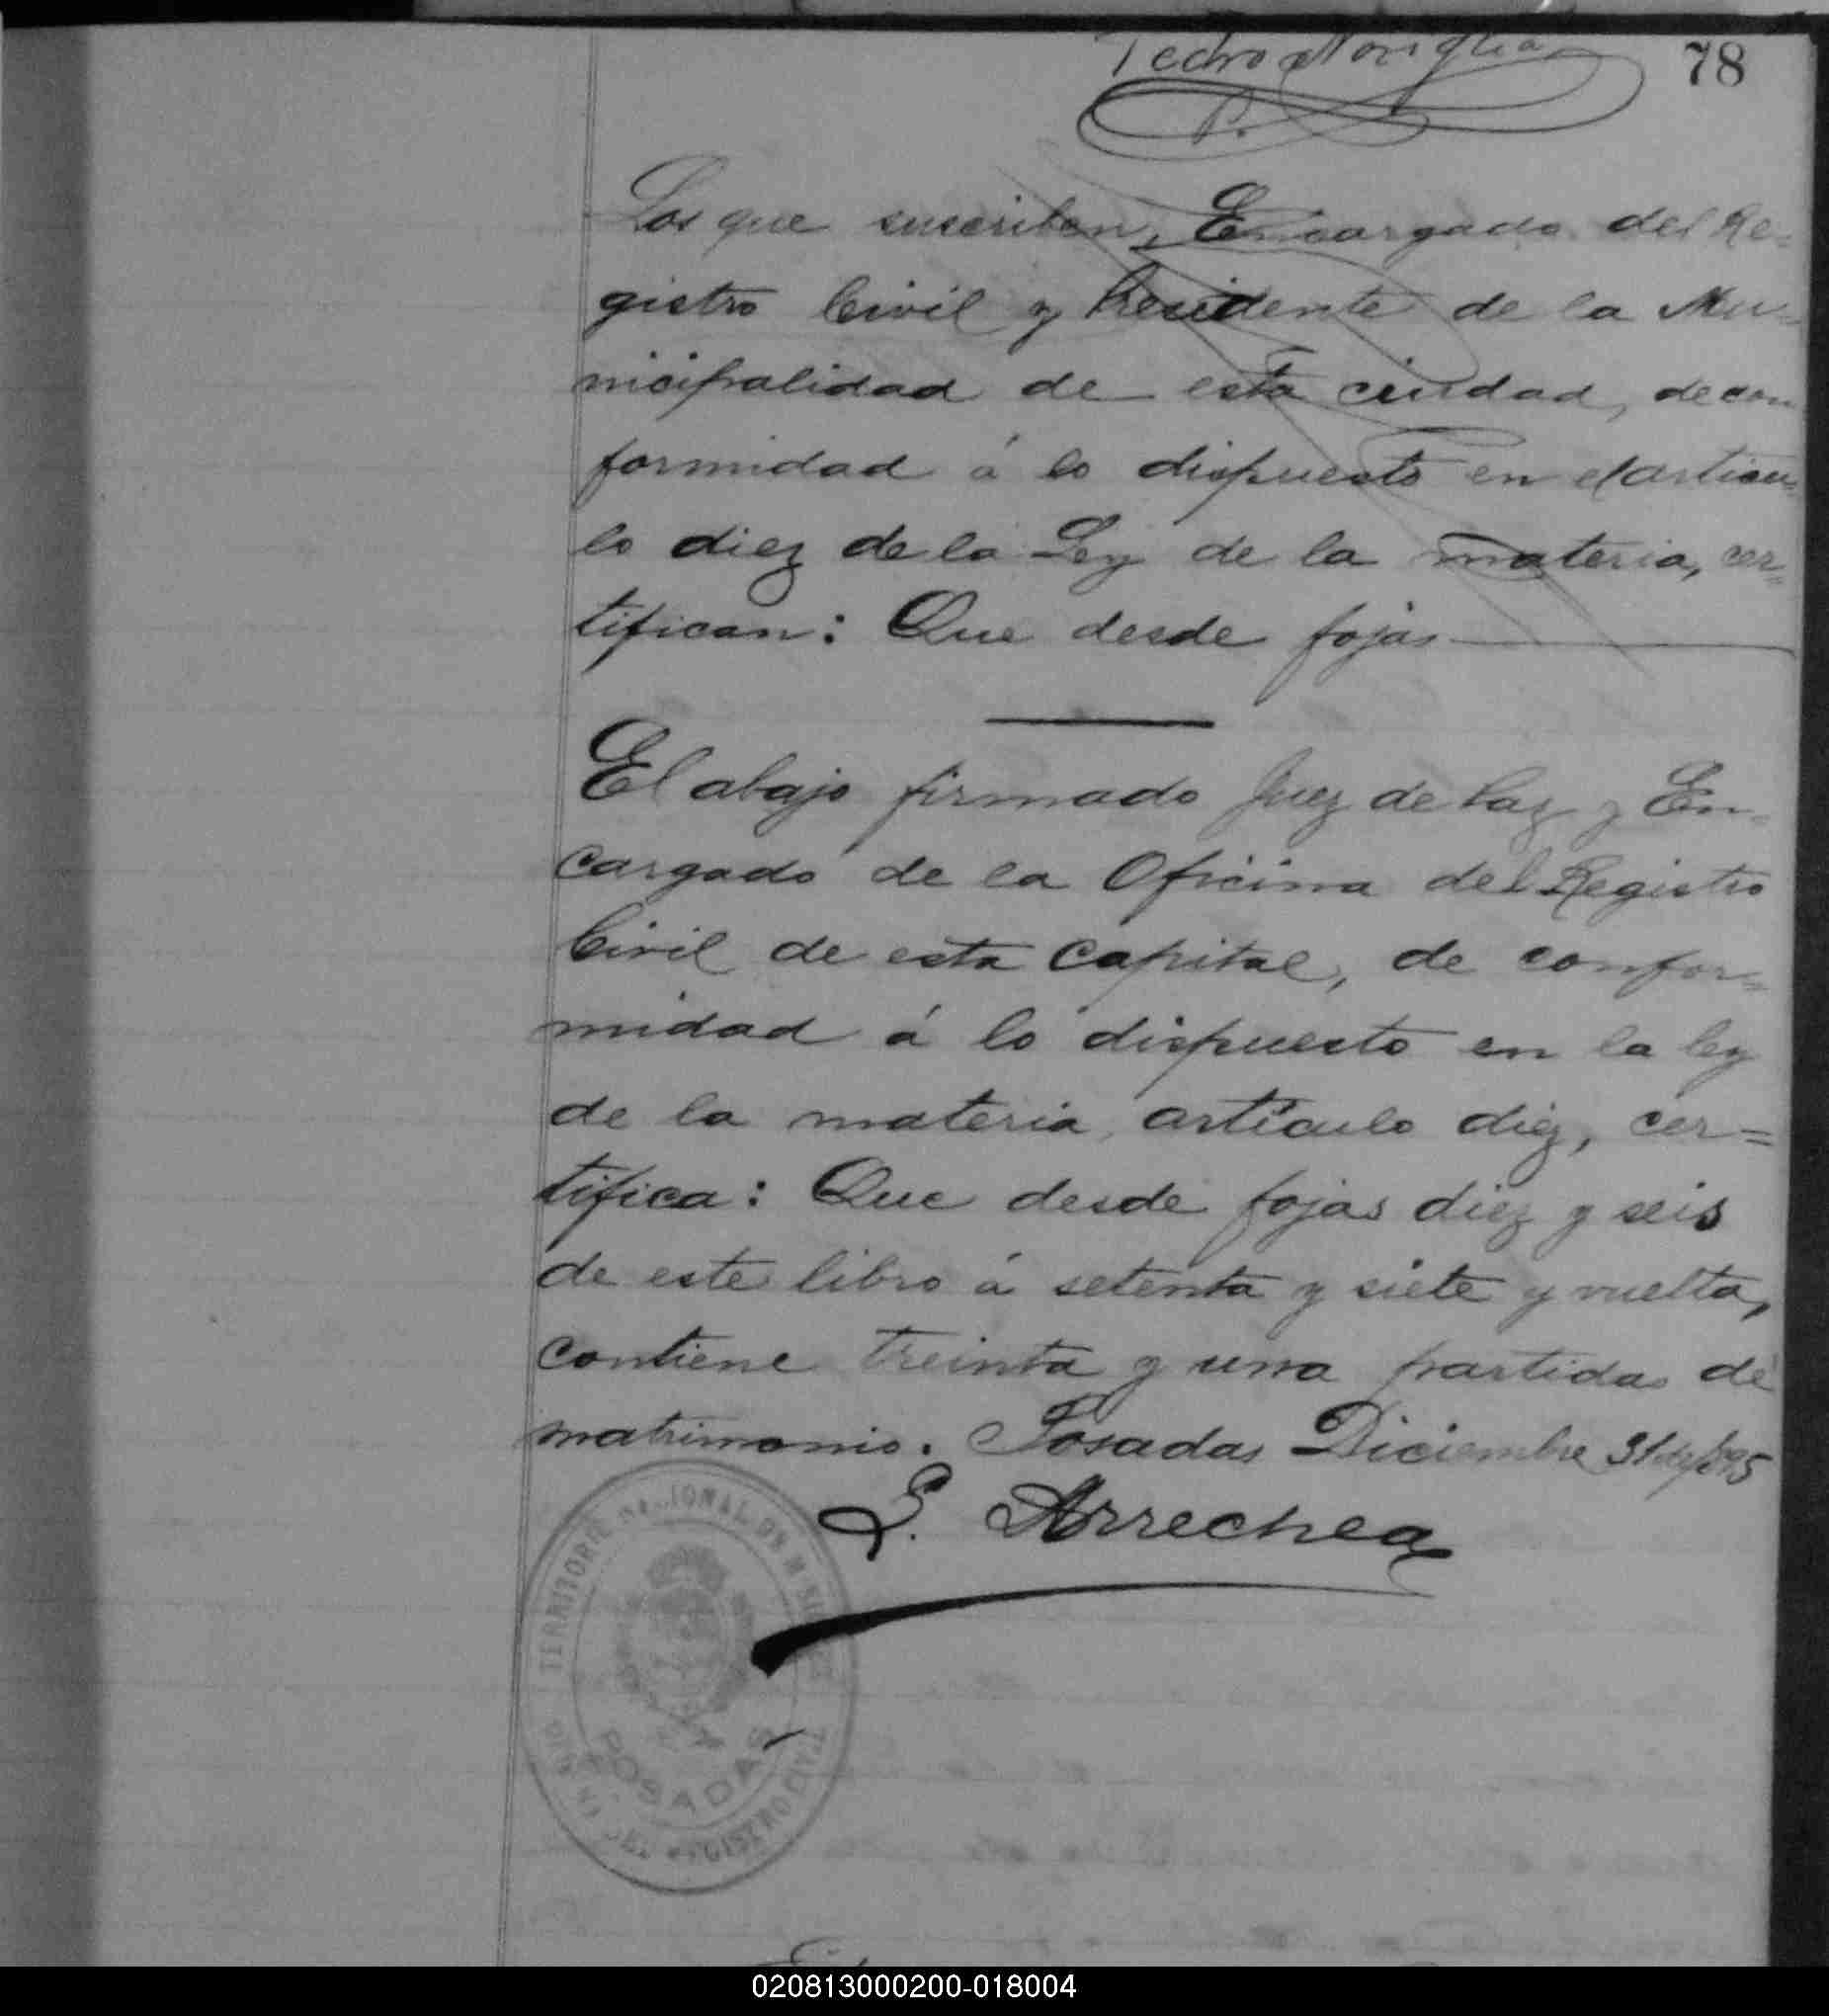 Pedro Noriega
78
P.
Los que suscriben, Encargado del Re-
gistro Civil y Presidente de la Mu-
nicipalidad de esta ciudad, de con
formidad á lo dispuesto en el articu-
lo diez de la Ley de la materia, cer=
tifican: Que desde fojas
El abajo firmado Juez de Paz y En-
cargado de la Oficina del Registro
Civil de esta Capital, de confor=
midad á lo dispuesto en la ley
de la materia, artículo diez, cer=
tifica: Que desde fojas diez y seis
de este libro á setenta y siete y vuelta,
contiene treinta y una partidas de
matrimonio. Posadas Diciembre 31 de 1895
E. Arrechea
TERRITORIO NACIONAL DE MISIONES
POSADAS
OFICINA DEL REGISTRO CIVIL
020813000200-018004